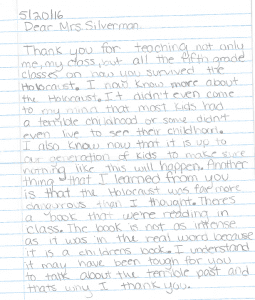 5/20/16
Dear Mrs. Silverman,
Thank you for teaching not only
me, my class, but all the fifth grade
classes on how you survived the
Holocaust. I now know more about
the Holocaust. It didn't even come
to my mind that most kids had
a terrible childhood or some didn't
even live to see their childhori.
I also know now that it is up to
our generation of kids to make sure
nothing like this will happen. Another
thing that I learned from you
is that the Holocaust was far more
dangerous than I thought. There's
a book that we're reading in
class. The book is not as intense
as it was in the real word because
it is a childrens book. I understand
it may have been tough for you
to talk about the terrible past and
thats why I thank you.